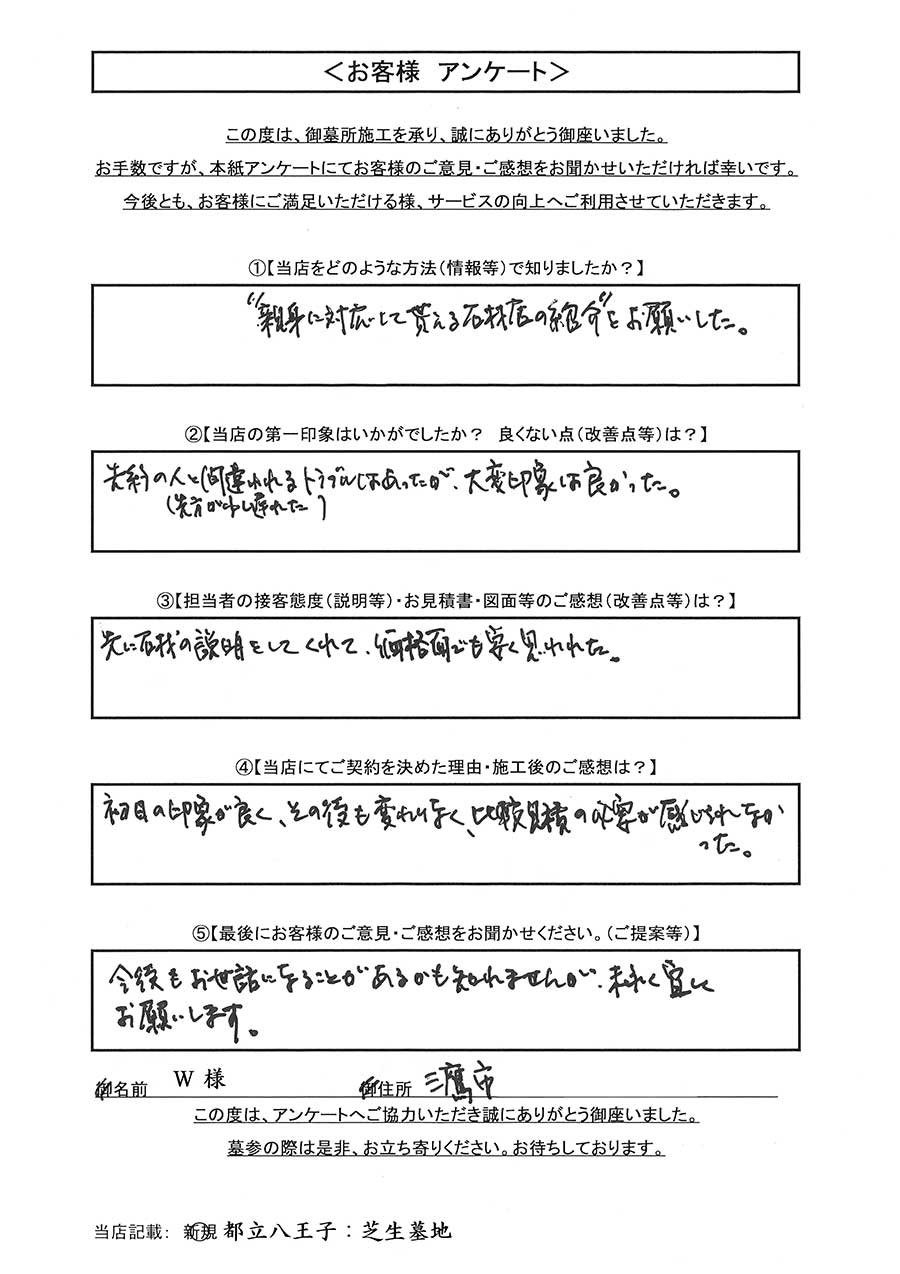 ＜お客様　アンケート＞
この度は、御墓所施工を承り、誠にありがとう御座いました。
お手数ですが、本紙アンケートにてお客様のご意見・ご感想をお聞かせいただければ幸いです。
今後とも、お客様にご満足いただける様、サービスの向上へご利用させていただきます。
①【当店をどのような方法（情報等）で知りましたか？】
“親身に対応して貰える石材店の紹介”をお願いした。
②【当店の第一印象はいかがでしたか？　良くない点（改善点等）は？】
先約の人と間違われるトラブルはあったが、大変印象は良かった。
（先方が申し遅れた）
③【担当者の接客態度（説明等）・お見積書・図面等のご感想（改善点等）は？】
先に石材の説明をしてくれて、価格面でも安く思われた。
④【当店にてご契約を決めた理由・施工後のご感想は？】
初日の印象が良く、その後も変わりなく、比較見積の必要が感じられなか
った。
⑤【最後にお客様のご意見・ご感想をお聞かせください。（ご提案等）】
今後もお世話になることがあるかも知れませんが、末永く宜しく
お願いします。
御名前　W 様　御住所　三鷹市
この度は、アンケートへご協力いただき誠にありがとう御座いました。
墓参の際は是非、お立ち寄りください。お待ちしております。
当店記載：　新規　都立八王子：芝生墓地